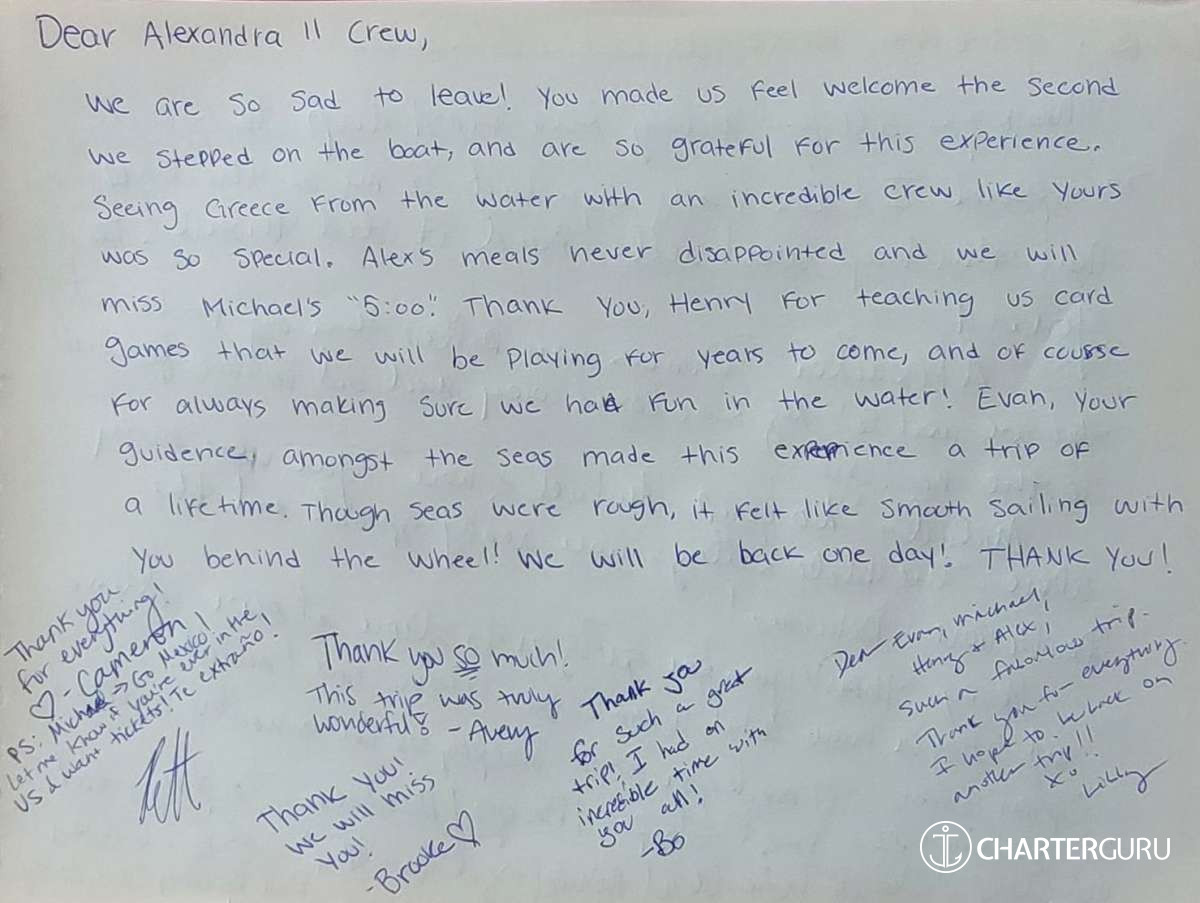 Dear Alexandra II Crew,
We are so sad to leave! You made us feel welcome the second
we stepped on the boat, and are so grateful for this experience.
Seeing Greece from the water with an incredible crew like yours
was so special. Alex's meals never disappointed and we will
miss Michael's "5:00". Thank you, Henry for teaching us card
games that we will be playing for years to come, and of course
for always making sure we had fun in the water! Evan, your
guidence, amongst the seas made this experience a trip of
a lifetime. Though seas were rough, it felt like smooth sailing with
you behind the wheel! We will be back one day! THANK YOU!
Thank you
for everything!
♡ - Cameron!
PS: Michael → Go Mexico!
Let me know if you're ever in the
US & want tickets! Te extraño!
Thank you so much!
This trip was truly
wonderful! - Avery
Thank You!
We will miss
you!
-Brooke ♡
Thank you
for such a great
trip! I had an
incredible time with
you all!
-Bo
Dear Evan, Michael,
Henry + Alex,
Such a fabulous trip.
Thank you for everything.
I hope to be back on
another trip!!
xo
Lilly
CHARTERGURU